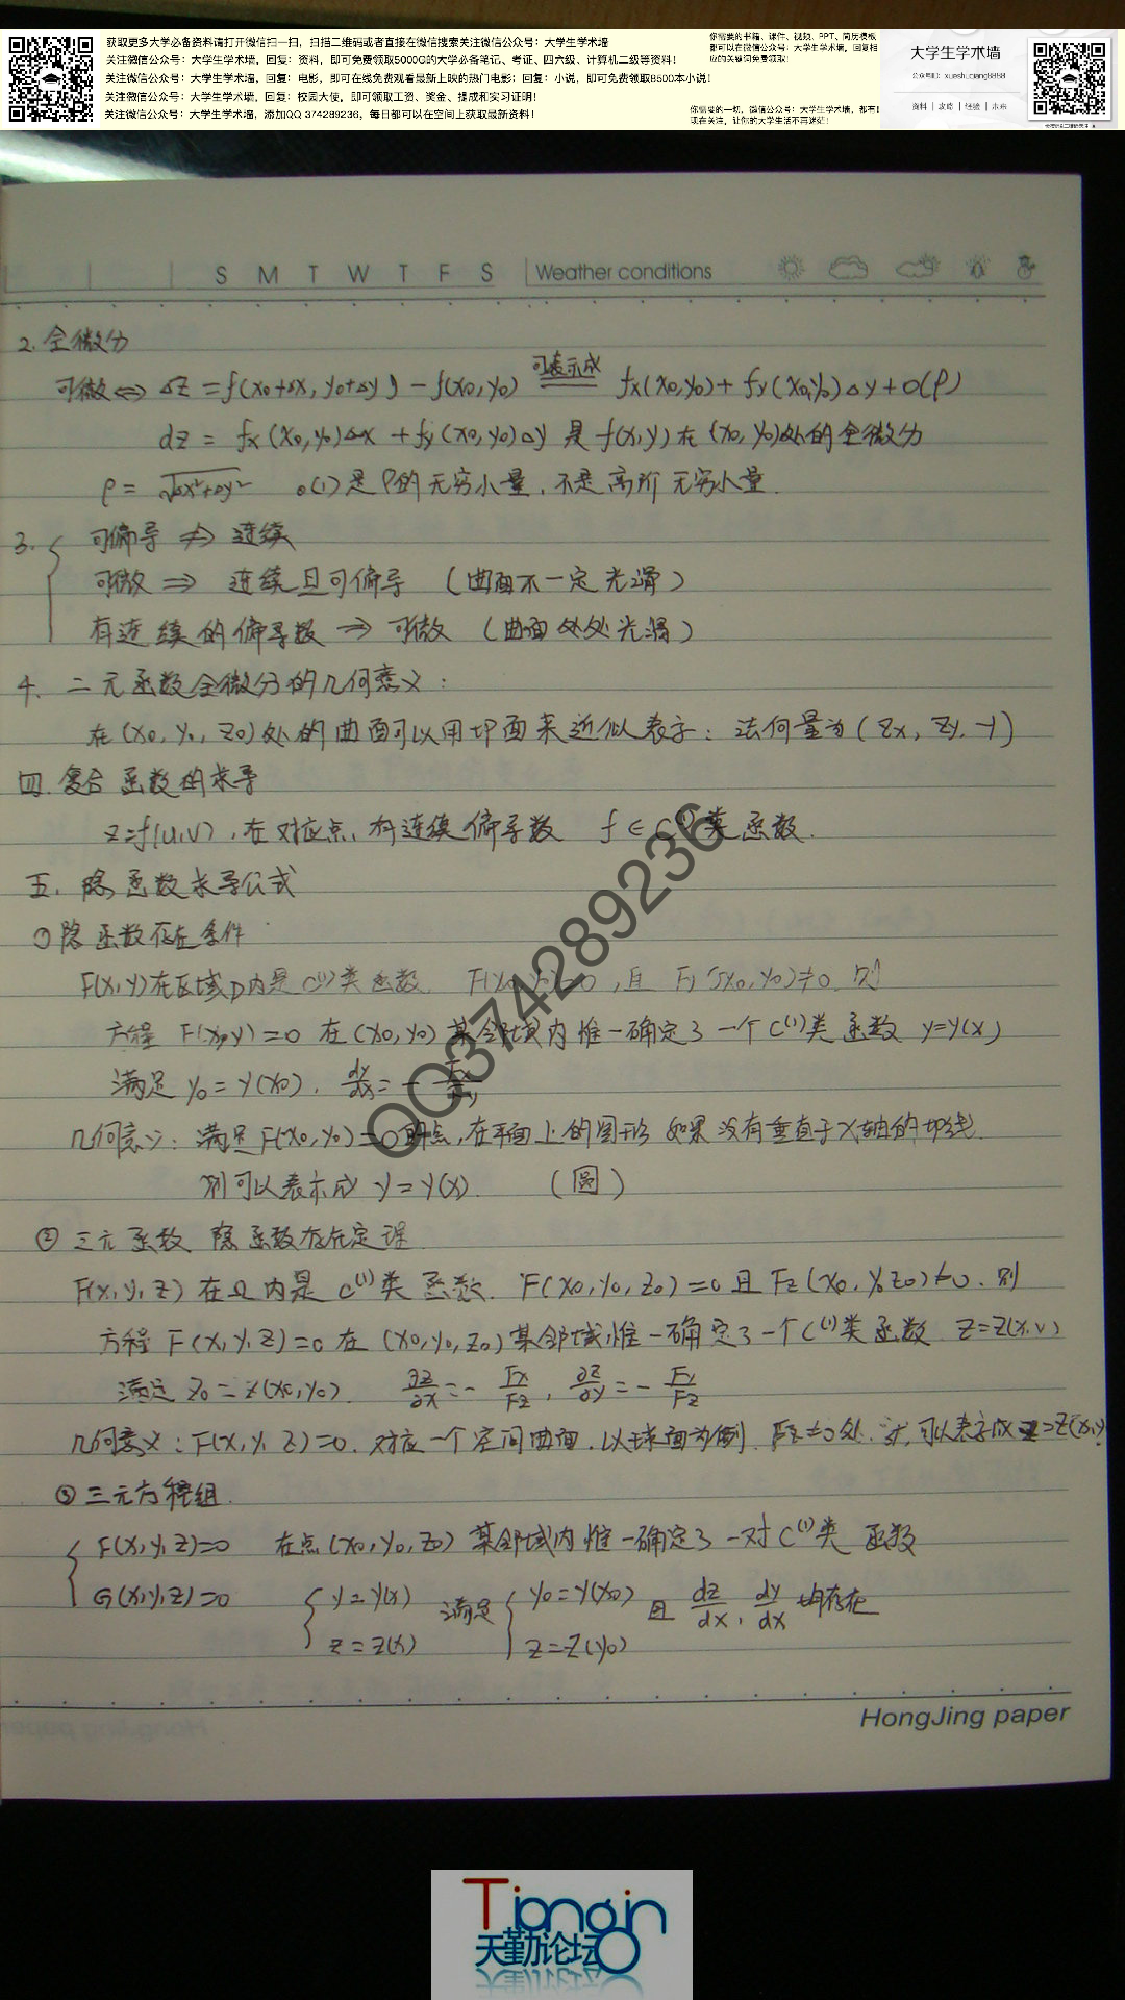 获取更多大学必备资料请打开微信扫一扫，扫描二维码或者直接在微信搜索关注微信公众号：大学生学术墙
关注微信公众号：大学生学术墙，回复：资料，即可免费领取5000G的大学必备笔记、考证、四六级、计算机二级等资料！
关注微信公众号：大学生学术墙，回复：电影，即可在线免费观看最新上映的热门电影；回复：小说，即可免费领取8500本小说！
关注微信公众号：大学生学术墙，回复：校园大使，即可领取工资、奖金、提成和实习证明！
关注微信公众号：大学生学术墙，添加QQ 374289236，每日都可以在空间上获取最新资料！
你需要的书籍、课件、视频、PPT、简历模板
都可以在微信公众号：大学生学术墙，回复相
应的关键词免费领取！
你需要的一切，微信公众号：大学生学术墙，都有！
现在关注，让你的大学生活不再迷茫！
大学生学术墙
公众号ID：xueshuqiang8888
资料 | 攻略 | 经验 | 未来
S M T W T F S Weather conditions
2. 全微分
可微⇔ △Z = f(x0+△x, y0+△y) - f(x0, y0) 可表示成 fx(x0,y0) + fy(x0,y0)△y + o(ρ)
dz = fx(x0,y0)△x + fy(x0,y0)△y 是 f(x,y) 在 (x0,y0)处的全微分
ρ = √△x²+△y² o(1)是ρ的无穷小量，不是高阶无穷小量.
3. { 可偏导 ⇏ 连续
可微 ⇒ 连续且可偏导 (曲面不一定光滑)
有连续的偏导数 ⇒ 可微 (曲面处处光滑)
4. 二元函数全微分的几何意义：
在(x0, y0, z0)处的曲面可以用切面来近似表示：法向量为(Zx, Zy, -1)
四. 复合函数的求导
z=f(u,v), 在对应点, 有连续偏导数 f∈C⁽¹⁾类函数.
五. 隐函数求导公式
①隐函数存在条件
F(x,y)在区域D内是C⁽¹⁾类函数. F(x0,y0)=0, 且 Fy(x0,y0)≠0. 则
方程 F(x,y)=0 在(x0,y0)某邻域内惟一确定了一个C⁽¹⁾类函数 y=y(x)
满足 y0=y(x0). dy/dx = - Fx/Fy
几何意义：满足F(x0,y0)=0的点, 在平面上的图形 如果没有垂直于X轴的切线.
则可以表示成 y=y(x). (圆)
② 三元函数 隐函数存在定理
F(x,y,z) 在Ω内是 C⁽¹⁾类函数. F(x0,y0,z0)=0 且 Fz(x0,y0,z0)≠0. 则
方程 F(x,y,z)=0 在 (x0,y0,z0)某邻域, 惟一确定了一个C⁽¹⁾类函数 z=z(x,y)
满足 z0=z(x0,y0). ∂z/∂x = - Fx/Fz, ∂z/∂y = - Fy/Fz
几何意义：F(x,y,z)=0. 对应一个空间曲面. 以球面为例. Fz≠0处, 可以表示成 z=z(x,y)
③ 三元方程组.
{ F(x,y,z)=0 在点(x0,y0,z0)某邻域内惟一确定了一对C⁽¹⁾类函数
G(x,y,z)=0 { y=y(x) 满足 { y0=y(x0) 且 dz/dx, dy/dx 均存在
z=z(x) z=z(y0)
HongJing paper
QQ374289236
Tianqin
天勤论坛